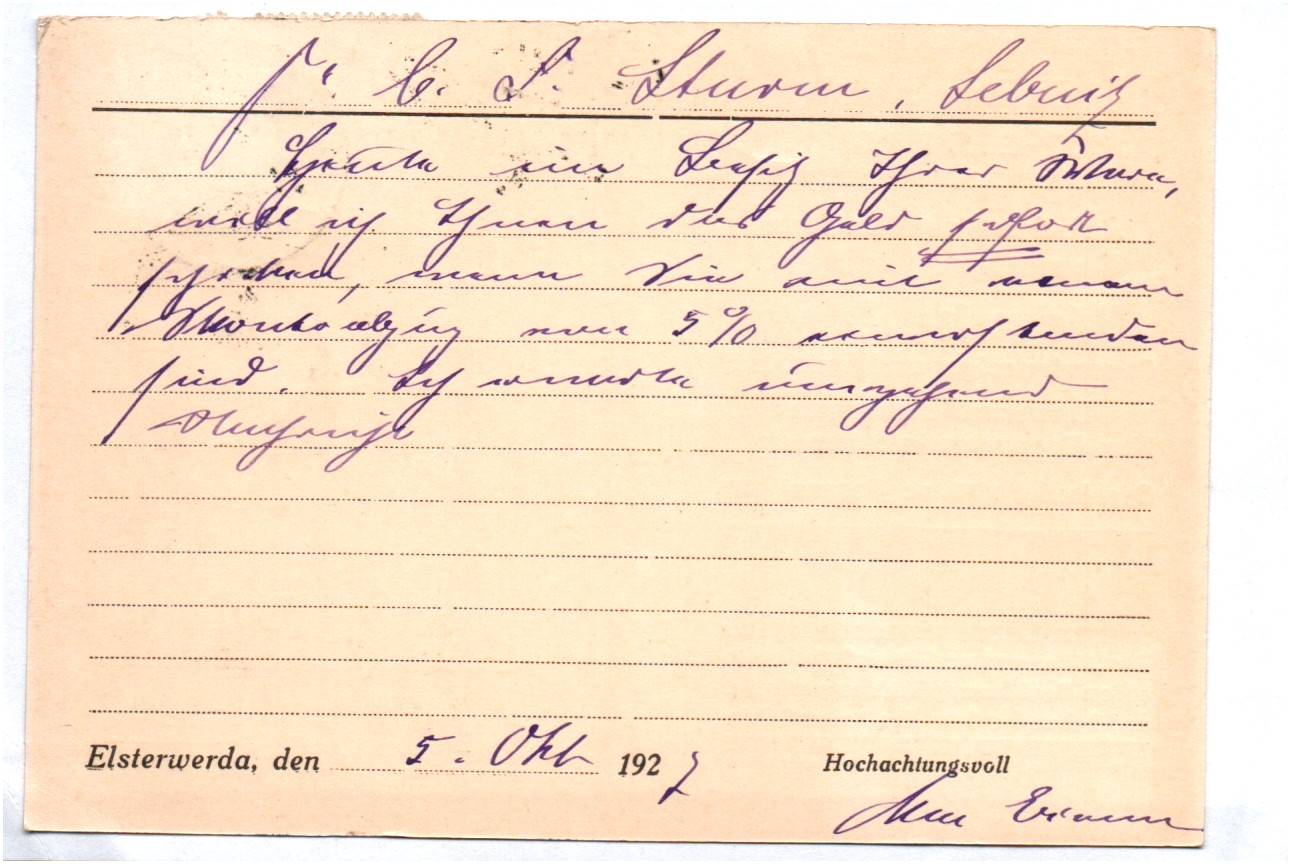 Fa. C. S. Sturm, Sebnitz
Heute im Besitz Ihrer
will ich Ihnen das Geld sofort
schicken, wenn Sie mit einem
Skontoabzug von 5% einverstanden
sind. Ich erwarte umgehend
Nachricht
Elsterwerda, den 5. Okt 1927 Hochachtungsvoll